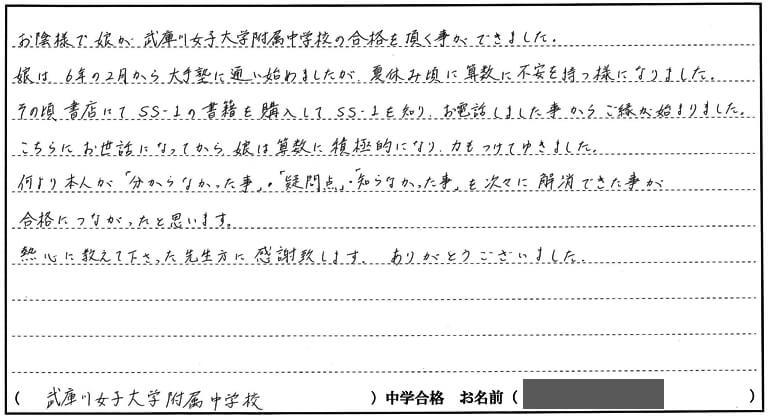 お陰様で娘が武庫川女子大学附属中学校の合格を頂く事ができました。
娘は6年の2月から大手塾に通い始めましたが、夏休み頃に算数に不安を持つ様になりました。
その頃書店にてSS-1の書籍を購入してSS-1を知り、お電話しました事からご縁が始まりました。
こちらにお世話になってから娘は算数に積極的になり、力もつけてゆきました。
何より本人が「分からなかった事」・「疑問点」・「知らなかった事」を次々に解消できた事が
合格につながったと思います。
熱心に教えて下さった先生方に感謝致します。 ありがとうございました。
( 武庫川女子大学附属中学校 ) 中学合格 お名前 ( )